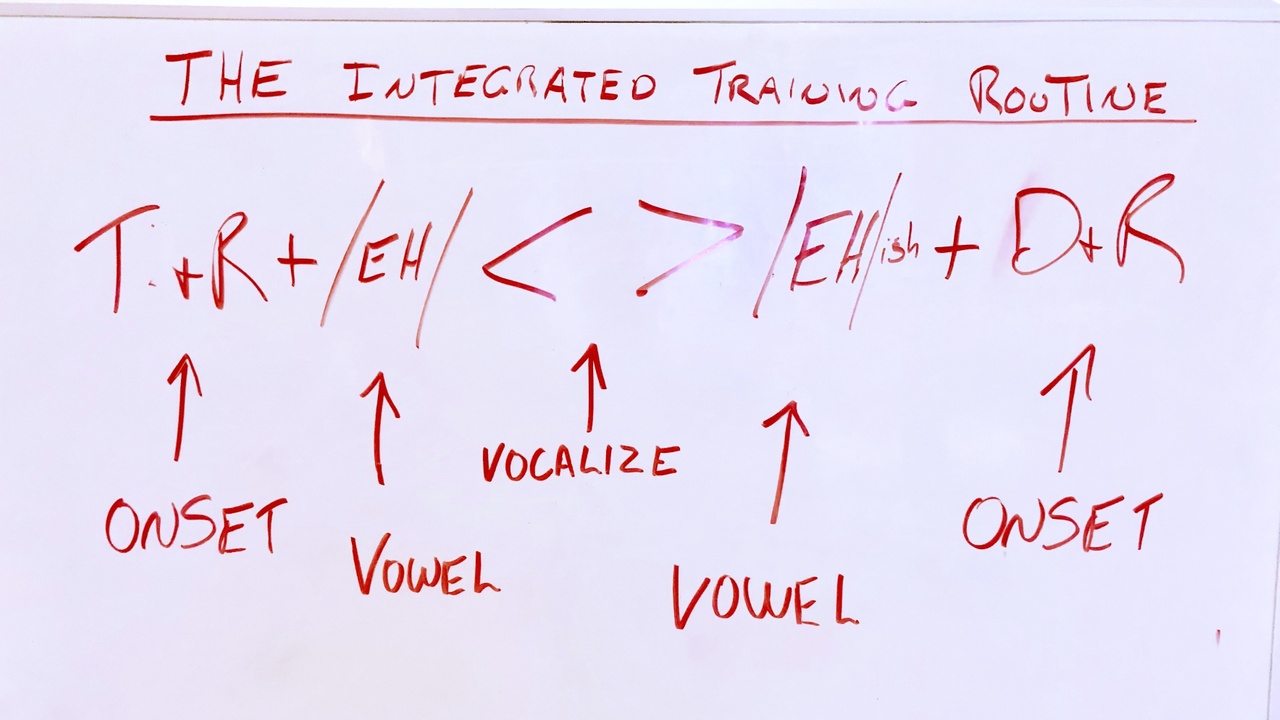 THE INTEGRATED TRAINING ROUTINE
T+R + /EH/ < > /EH/ish + D+R
VOCALIZE
ONSET VOWEL VOWEL ONSET